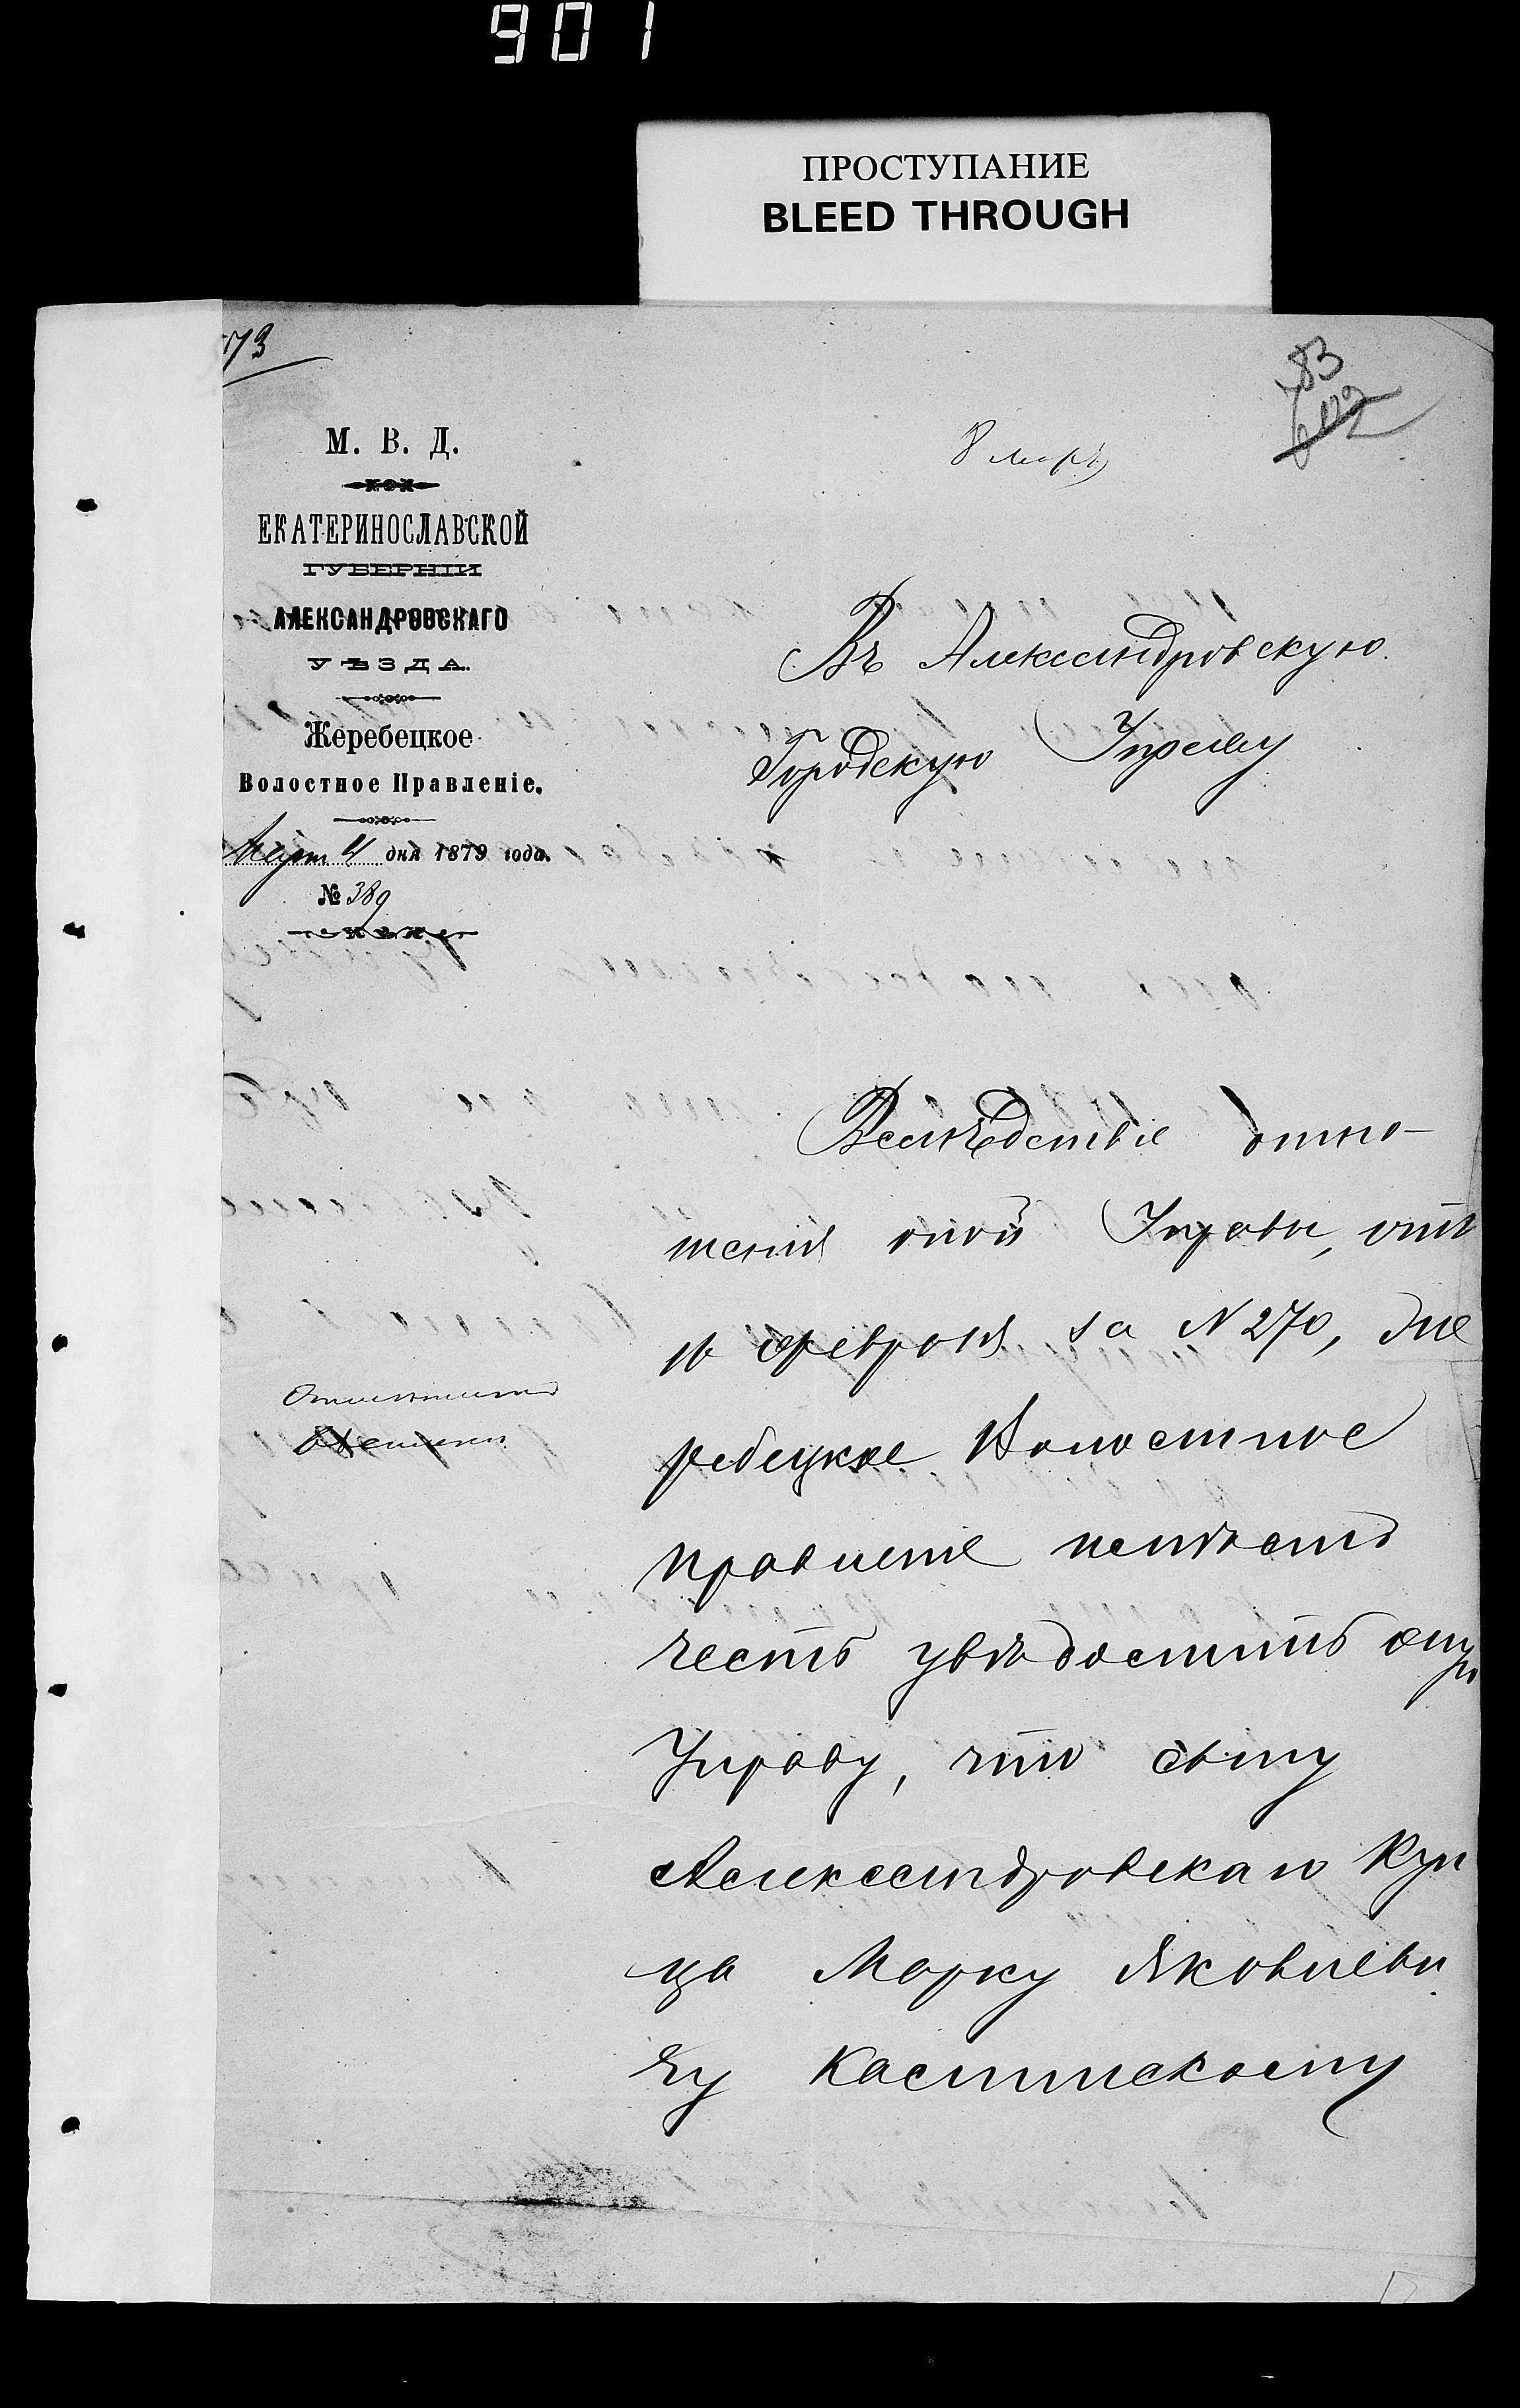 901
ПРОСТУПАНИЕ
BLEED THROUGH
73
83
М. В. Д.
ЕКАТЕРИНОСЛАВСКОЙ
ГУБЕРНІИ
АЛЕКСАНДРОВСКАГО
УѢЗДА.
Жеребецкое
Волостное Правленіе.
Марта 4 дня 1879 года.
№ 389
8 мар
Въ Александровскую
Городскую Управу
Вслѣдствіе отно-
шенія оной Управы, отъ
февраля за N 270, Же
ребецкое Волостное
правленіе имѣетъ
честь увѣдомить оную
Управу, что сыну
Александровскаго Куп
ца Марку Яковлеви
чу Каспинскому